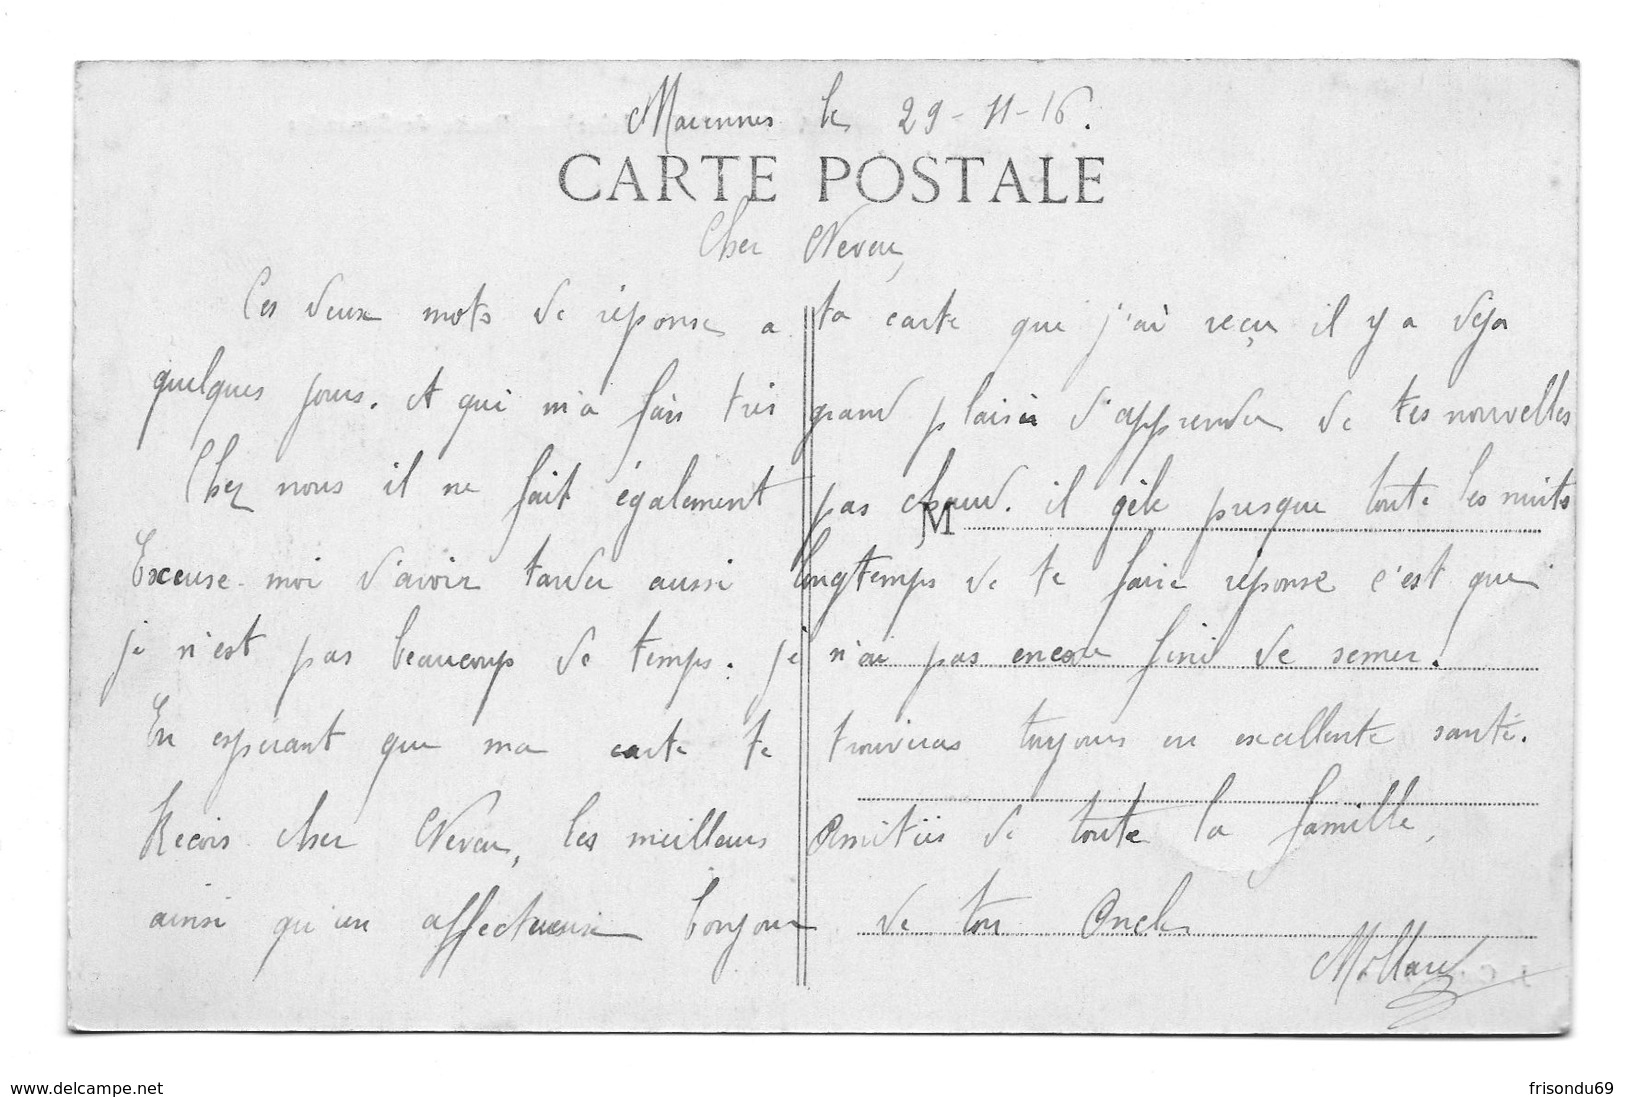 Marennes le 29-11-16.
CARTE POSTALE
Cher Neveu,
Ces deux mots de réponse a ta carte que j'ai reçu il y a déja
quelques jours. et qui m'a fais très grand plaisir d'apprendre de tes nouvelles
Chez nous il ne fait également pas chaud. il gèle presque toute les nuits
M
Excuse-moi d'avoir tarder aussi longtemps de te faire réponse c'est que
je n'est pas beaucoup de temps. je n'ai pas encore fini de semer.
En espérant que ma carte te trouveras toujours en excellente santé.
Recois cher Neveu, les meilleurs Amitiés de toute la famille,
ainsi qu'un affectueux bonjour de ton Oncle
Mollard
www.delcampe.net
frisondu69